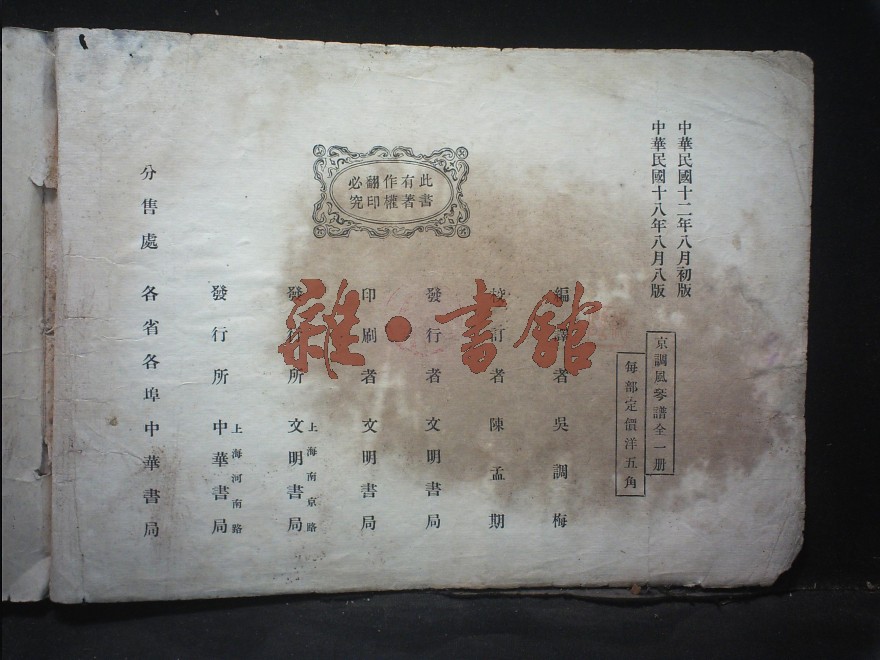 中華民國十二年八月初版
中華民國十八年八月八版
京調風琴譜全一册
每部定價洋五角
此書
有著
作權
翻印
必究
編譯者 吳調梅
校訂者 陳孟期
發行者 文明書局
印刷者 文明書局
上海南京路
發行所 文明書局
上海河南路
發行所 中華書局
分售處 各省各埠中華書局
雜·書館